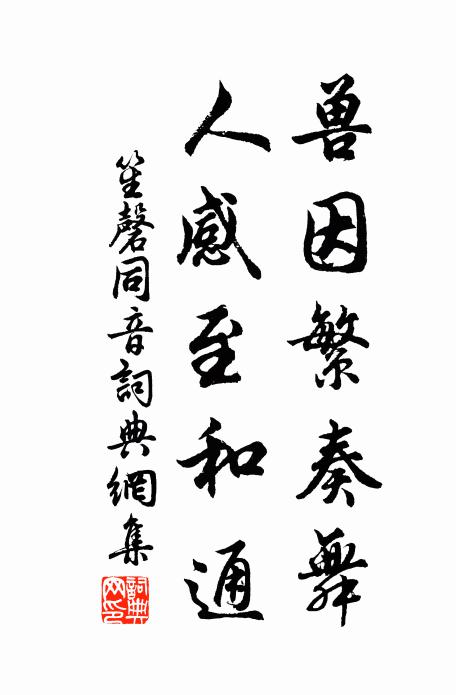 兽因繁奏舞
人感至和通
笙磬同音詞典網集
詞典
网印